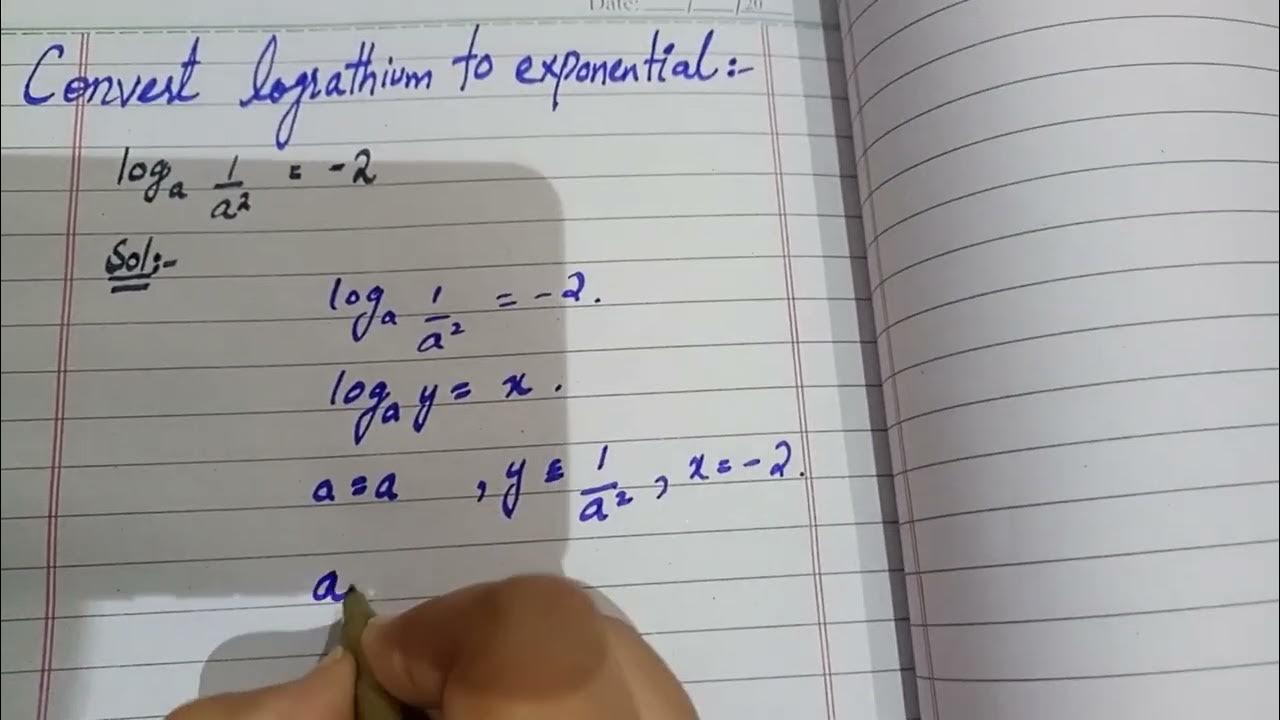 Date: ___/___/20
Convert lograthium to exponential:-
logₐ 1/a² = -2
Sol:-
logₐ 1/a² = -2.
logₐ y = x.
a = a , y = 1/a² , x = -2.
a